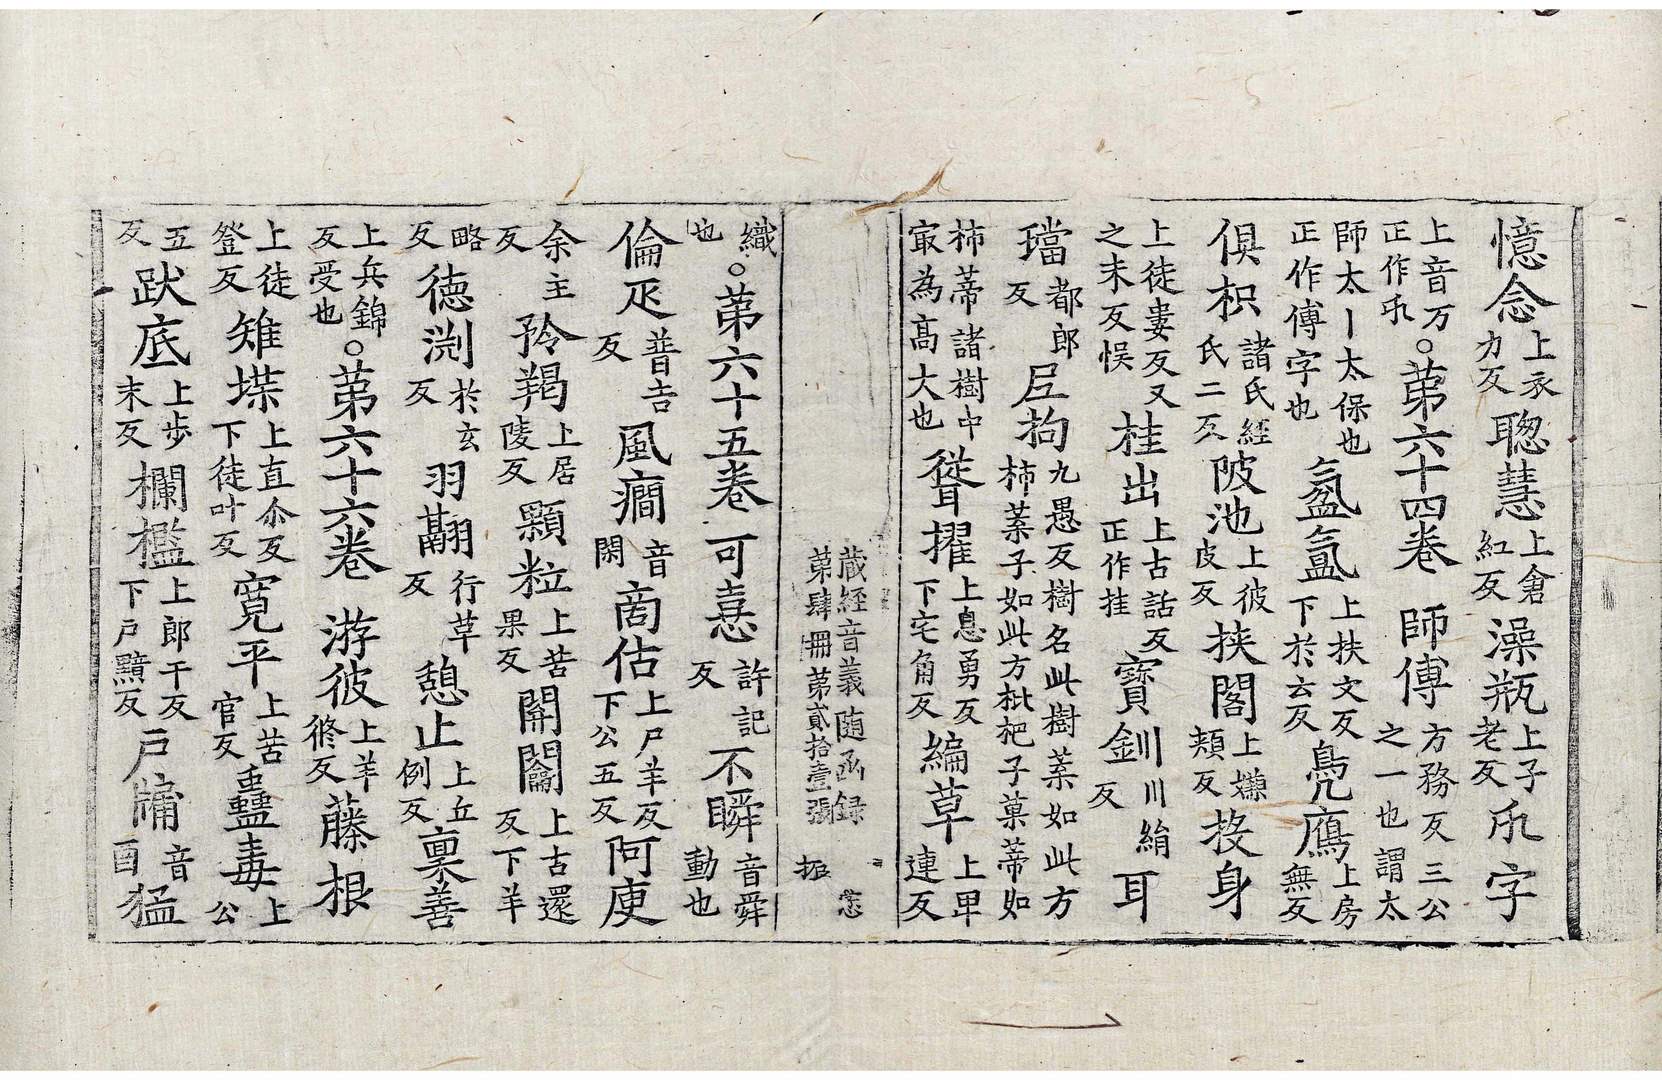 憶念上永力反聰慧上倉紅反澡瓶上子老反𠂑字
上音万正作卍。第六十四卷 師傅方務反三公之一也謂太
師太丨太保也正作傅字也氛氳上扶文反下於云反鳧鴈上房無反
俱枳諸氏經氏二反陂池上彼皮反挾閣上嫌頬反投身
上徒婁反又之末反悮桂出上古話反正作挂寶釧川絹反耳
璫都郎反𡱈拘九愚反樹名此樹葉如此方柿葉子如此方枇杷子菓蒂如
柿蒂諸樹中㝡為高大也聳擢上息勇反下宅角反編草上畢連反
蔵経音義随函録
第肆冊第貳拾壹張 振 恙
織也。第六十五卷 可憙許記反不瞬音舜動也
倫疋普吉反風癎音閑商估上尸羊反下公五反阿庾
余主反羖羯上居陵反顆粒上苦果反關闟上古還反下羊
略反德渕於玄反羽翮行草反憩止上丘例反稟善
上兵錦反受也。第六十六卷 游彼上羊修反藤根
上徒登反雉堞上直尒反下徒叶反寬平上苦官反蠱毒上公
五反跋底上步末反欄檻上郎干反下户黤反戸牖音酉猛